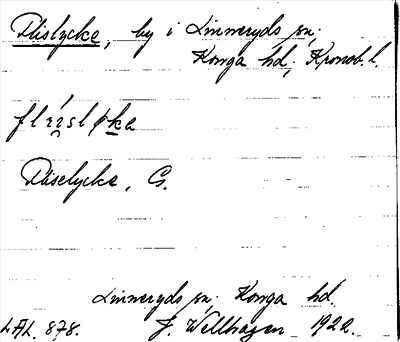 Flislycke, by i Linneryds sn.
Konga hd, Kronob. l.
Fliselycke, G.
Linneryds sn. Konga hd.
LAL. 878. J. Wellhagen 1922.